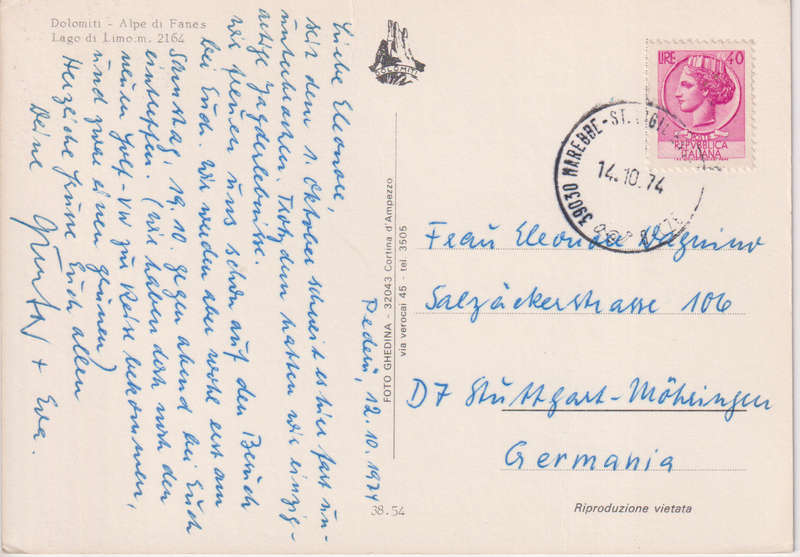 Dolomiti - Alpe di Fanes
Lago di Limo m. 2164
DOLOMITI
Pederü, 12.10.1974
Liebe Eleonore,
seit dem 1. Oktober schneit es hier fast un-
unterbrochen. Trotzdem hatten wir einzig-
artige Jagderlebnisse.
Wir freuen uns schon auf den Besuch
bei Euch. Wir werden aber wohl erst am
Samstag, 19.10. gegen abend bei Euch
eintreffen. (Wir haben doch noch den
neuen Golf-VW zur Reise bekommen,
und zwar einen grünen)
Herzliche Grüsse Euch allen
Deine Gunter + Eva.
FOTO GHEDINA - 32043 Cortina d'Ampezzo
via verocai 45 - tel 3505
38.54
LIRE 40
REPVBBLICA
ITALIANA
39030 MAREBBE-ST.
14.10.74
Frau Eleonore
Salzäckerstrasse 106
D7 Stuttgart-Möhringen
Germania
Riproduzione vietata